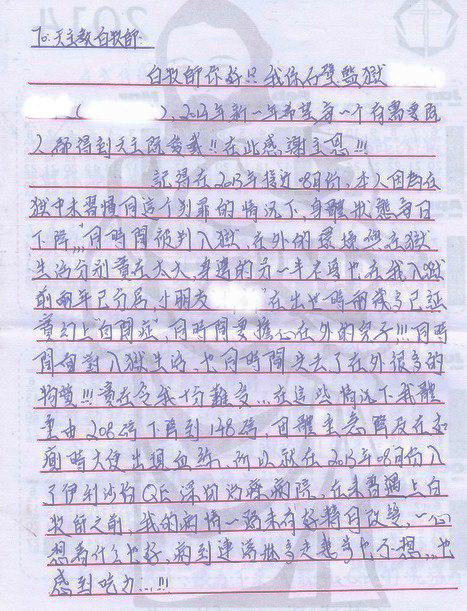 2014
To: 天主教白牧師:
白牧師你好!! 我係石壁監獄
( ), 2014年新一年希望每一个有需要既
人都得到天主既愛戴!! 在此感謝主恩!!!
記得在2013年接近08月份, 本人因為在
獄中未習慣同這个判罪的情況下, 身體狀態每日
下降,,, 同時間被判入獄, 在外的環境與在獄
生活分別實在太大, 身邊的另一半名 也在我入獄
前兩年已分居, 小朋友 在出世時兩歲多已証
實幻上"自閉症", 同時間要擔心在外的兒子!!! 同時
間面對入獄生活, 也同時間失去了在外很多的
物質!!! 實在令我十分難受... 在這些情況下, 我體
重由208磅下降到148磅, 日 在
時大便出現血絲, 所以就在2013年08月份入
了伊利沙伯QE深切治療病院, 在未曾遇上白
牧師之前, 我的病情一路未有好轉同改變, 一心
想為什么也好, 病到連落床多走幾步也不想,, 也
感到吃力...!!!